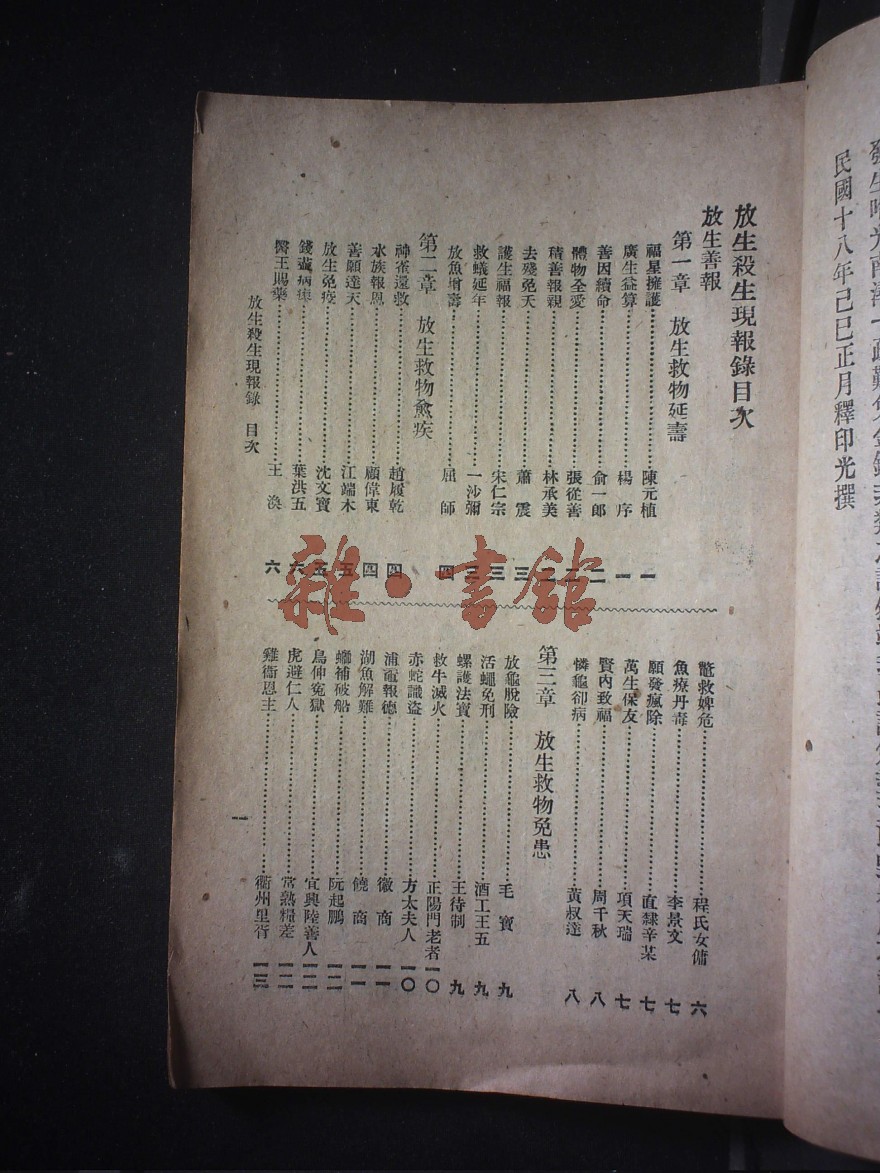 民國十八年己巳正月釋印光撰
放生殺生現報錄目次
放生善報
第一章 放生救物延壽
福星擁護 陳元植 一
廣生益算 楊序 一
善因續命 俞一郎 二
體物全愛 張從善 二
積善報親 林承美 二
去殘免夭 蕭震 三
護生福報 宋仁宗 三
救蟻延年 一沙彌 三
放魚增壽 屈師 四
第二章 放生救物愈疾
神雀還救 趙履乾 四
水族報恩 顧偉東 四
善願達天 江端木 五
放生免疫 沈文寶 五
錢 病痊 葉洪五 六
醫王賜藥 王渙 六
放生殺生現報錄 目次
鼈救婢危 程氏女傭 六
魚療丹毒 李景文 七
願發瘋除 直隸辛某 七
萬生保友 項天瑞 七
賢內致福 周千秋 八
憐龜卻病 黃叔達 八
第三章 放生救物免患
放龜脫險 毛寶 九
活蠅免刑 酒工王五 九
螺護法寶 王待制 九
救牛滅火 正陽門老者 一〇
赤蛇識盜 方太夫人 一〇
浦黿報德 徽商 一一
湖魚解難 饒商 一一
螄補破船 阮起鵬 一二
鳥伸冤獄 宜興陸善人 一二
虎避仁人 常熟糧差 一二
雞銜恩主 衢州里胥 一三
一
雜·書館